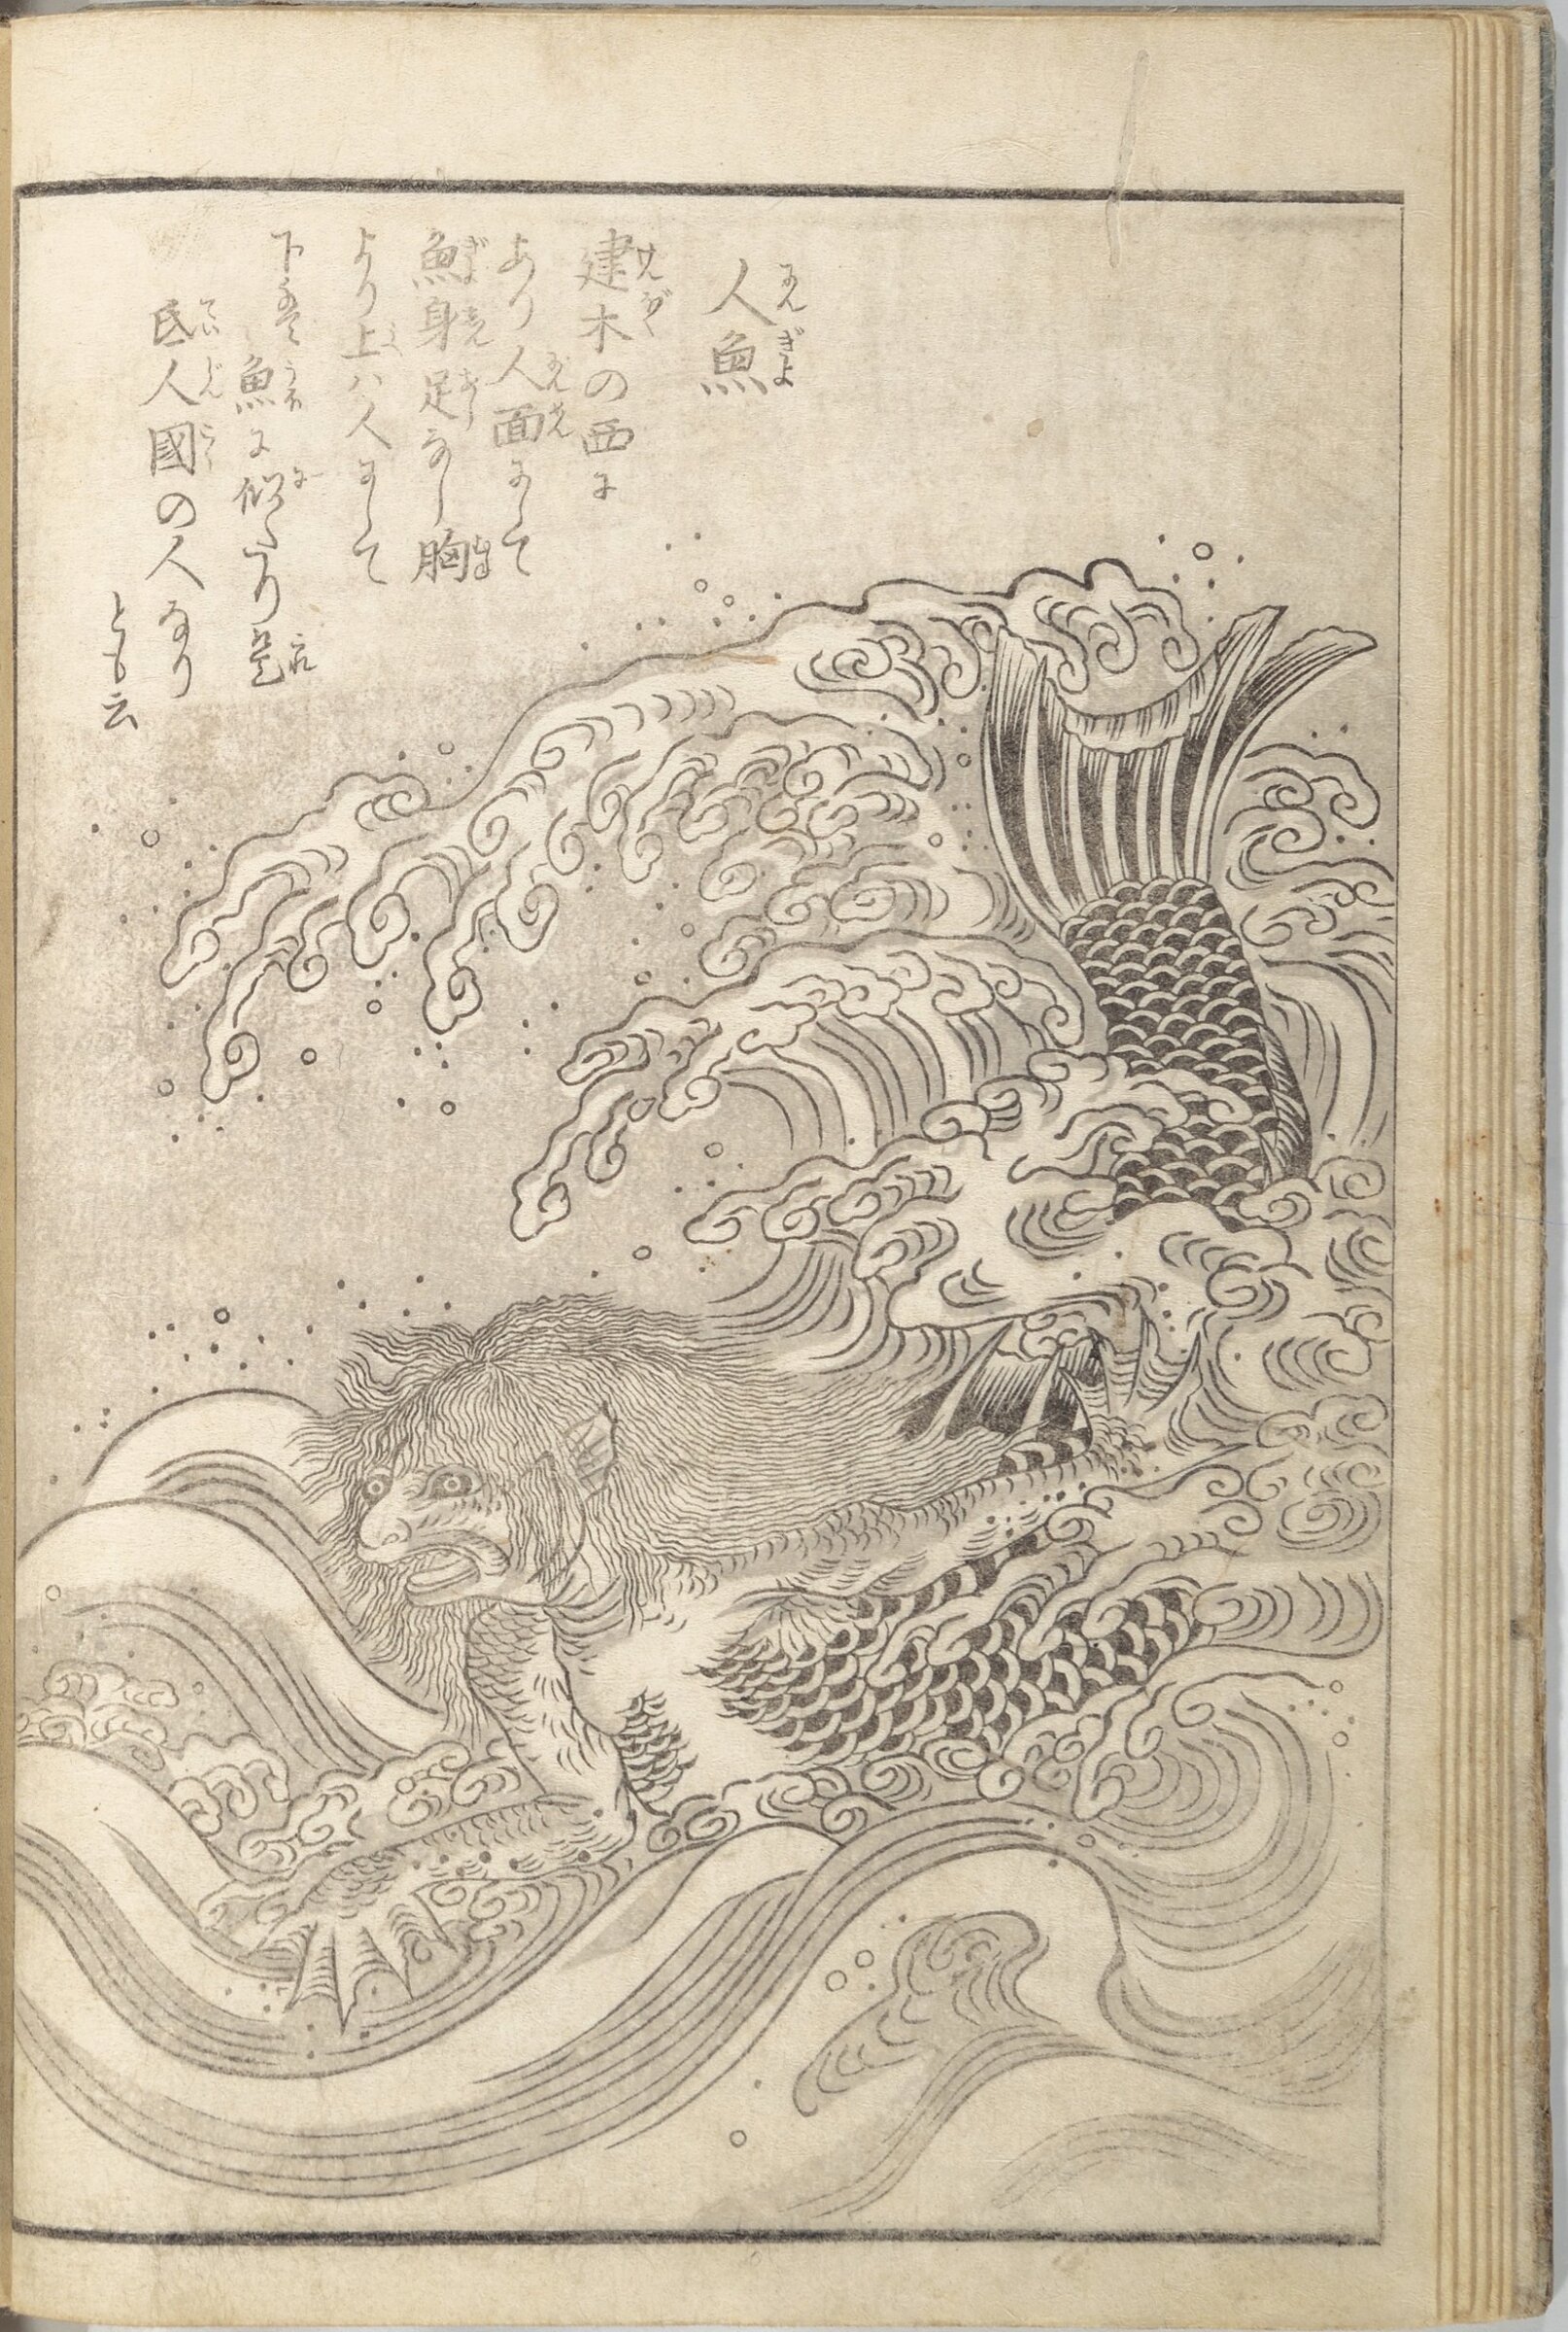 人魚
建木の西に
あり人面にして
魚身足なし胸
より上ハ人にして
下は魚に似たり是
氐人國の人なり
とも云